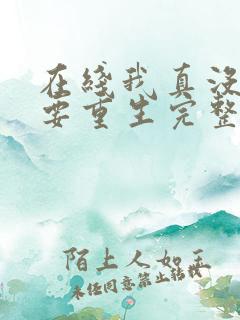 在线我真没
要重生完整
陌上人如玉
未经同意禁止转载